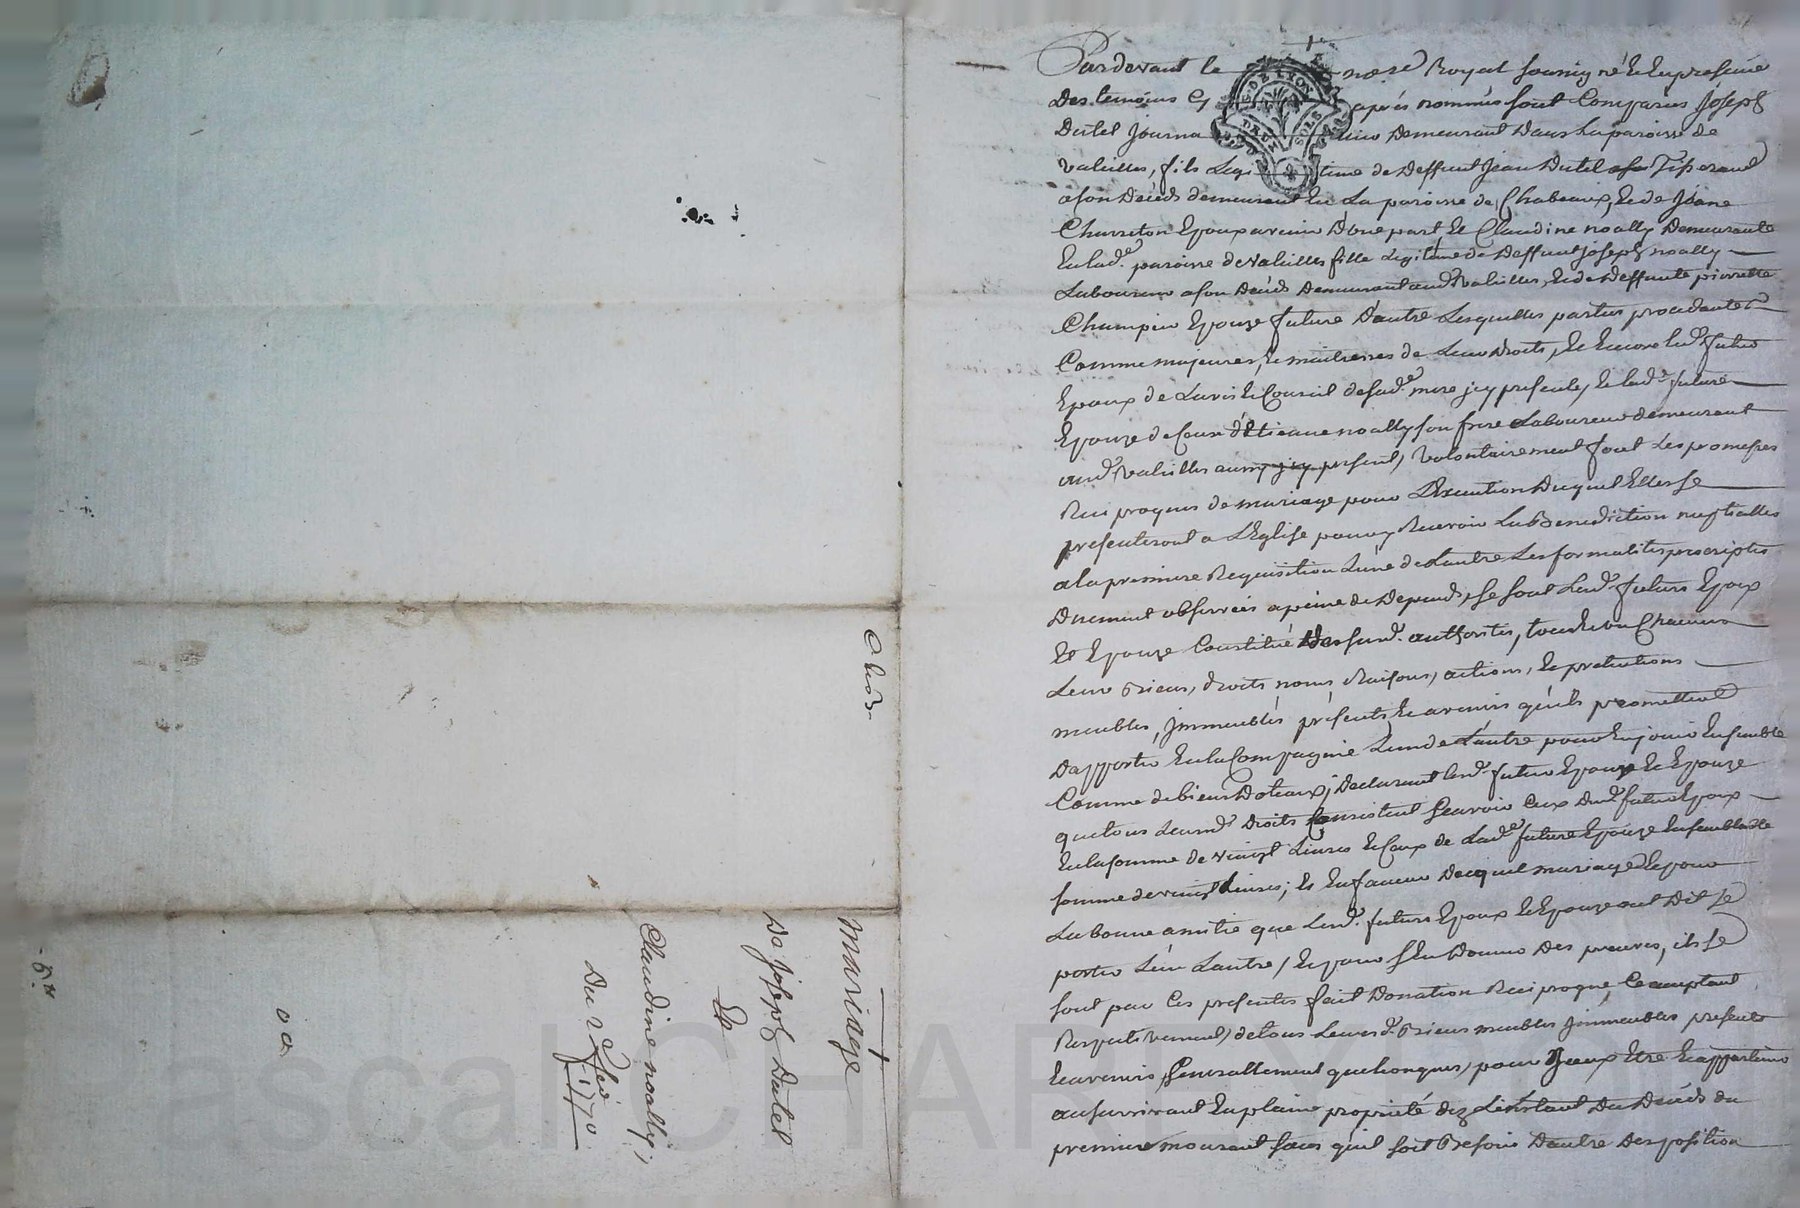 Pardevant le nore Royal soussigné et en presence
des temoins cy aprés nommés sont comparus Joseph
Dutel Journa demeurant dans la paroisse de
valeilles, fils legitime de deffunt Jean Dutel Tisserand
a son decéds demeurant en la paroisse de Chabeaux, et de Jeane
Charreton Epoux avenir d'une part Et Claudine noally demeurante
En lad.e paroisse de valeilles fille legitime de deffunt Joseph noally
Laboureur a son decéds demeurant aud. valeilles, et de deffunte pierrette
Champin Epouze future d'autre Lesquelles parties procedantes
Comme majeures, et maitresses de leurs droits, Et Encore led. futur
Epoux de l'avis et Conseil de sad.e mere icy presente, et lad.e future
Epouze de Ceux d'Etienne noally son frere Laboureur demeurant
aud. valeilles aussy icy present, volontairement font les promesses
Reciproques de mariage pour L'Execution duquel Elles se
presenteront a L'Eglise pour y Recevoir la Benediction nuptialles
a la premiere Requisition L'une de L'autre Les formalités prescriptes
duement observées a peine de depends, se sont lesd. futurs Epoux
Et Epouze Constitué de leursd. authorités, tous et un Chacuns
Leurs Biens, droits noms Raisons, actions, et pretentions
meubles, Immeubles presents et avenirs qu'ils promettent
d'apporter En la Compagnie L'un de L'autre pour En jouir Ensemble
Comme de biens dotaux; declarant lesd. futurs Epoux et Epouze
que tous leursd. droits Consistent sçavoir Ceux dud. futur Epoux
En la somme de vingt Livres Et Ceux de Lad.e future Epouze En semblable
somme de vingt Livres; Et En faveur duquel mariage Et pour
La bonne amitié que lesd. futurs Epoux Et Epouze ont dit se
porter L'un L'autre, Et pour s'En donner des preuves, ils se
sont par Ces presentes fait donation Reciproque, Ce acceptant
Respectivement, de tous leursd. Biens meubles Immeubles presents
Et avenirs generallement quelconques, pour Iceux Etre et appartenir
au survivant En plaine proprieté dez L'instant du decéds du
premier mourant sans qu'il soit Besoin d'autre disposition
mariage
De joseph Dutel
Et
Claudine noally,
Du 2 1770